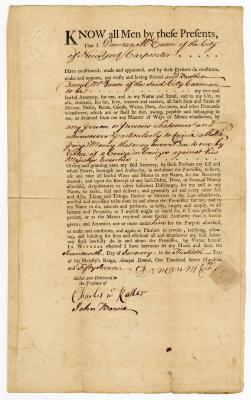 KNOW all Men by these Presents,
That I Duncan McEuen of the City
of New York Carpenter
Have constituted, made and appointed, and by these Presents do constitute,
make and appoint, my trusty and loving Friend and Brother
Daniel McEuen of the said City Carman
to be my true and
lawful Attorney, for me, and in my Name and Stead, and to my Use, to
ask, demand, sue for, levy, recover and receive, all such Sum and Sums of
Money, Debts, Rents, Goods, Wares, Dues, Accounts, and other Demands
whatsoever, which are or shall be due, owing, payable and belonging to
me, or detained from me any Manner of Ways or Means whatsoever, by
any Person or Persons whatsoever and
Majesties Enemies
Giving and granting unto my said Attorney, by these Presents my full and
whole Power, Strength and Authority, in and about the Premises, to have,
use and take all lawful Ways and Means in my Name, for the Recovery
thereof; and upon the Receipt of any such Debts, Dues, or Sums of Money
aforesaid, Acquittances or other sufficient Discharges, for me and in my
Name, to make, seal and deliver; and generally all and every other Act
and Acts, Thing and Things, Device or Devices in the Law whatsoever,
needful and necessary to be done in and about the Premises, for me, and in
my Name to do, execute and perform, as fully, largely and amply, to all
Intents and Purposes, as I myself might or could do, if I was personally
present, or as the Matter required more special Authority than is herein
given; and Attornies one or more under him for the Purpose aforesaid,
to make and constitute, and again at Pleasure to revoke; ratifying, allowing,
and holding for firm and effectual all and whatsoever my said Attorney
shall lawfully do in and about the Premises, by Virtue hereof.
In WITNESS whereof I have hereunto set my Hand and Seal, the
Seventeenth Day of January In the Thirtieth Year
of his Majesty's Reign, Annoq; Domini, One Thousand Seven Hundred
and Fifty Seven
Duncan McE
Sealed and Delivered in
the Presence of
Charles
John Bowie